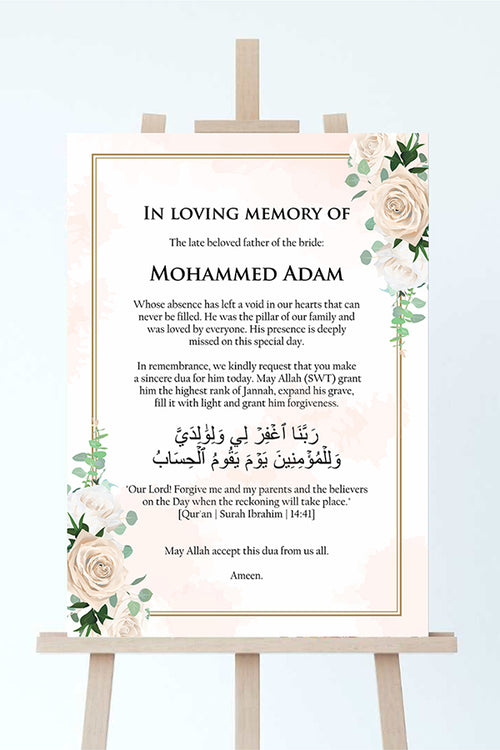 In loving memory of
The late beloved father of the bride:
Mohammed Adam
Whose absence has left a void in our hearts that can
never be filled. He was the pillar of our family and
was loved by everyone. His presence is deeply
missed on this special day.
In remembrance, we kindly request that you make
a sincere dua for him today. May Allah (SWT) grant
him the highest rank of Jannah, expand his grave,
fill it with light and grant him forgiveness.
رَبَّنَا ٱغْفِرْ لِي وَلِوَٰلِدَيَّ
وَلِلْمُؤْمِنِينَ يَوْمَ يَقُومُ ٱلْحِسَابُ
"Our Lord! Forgive me and my parents and the believers
on the Day when the reckoning will take place."
[Qur'an | Surah Ibrahim | 14:41]
May Allah accept this dua from us all.
Ameen.